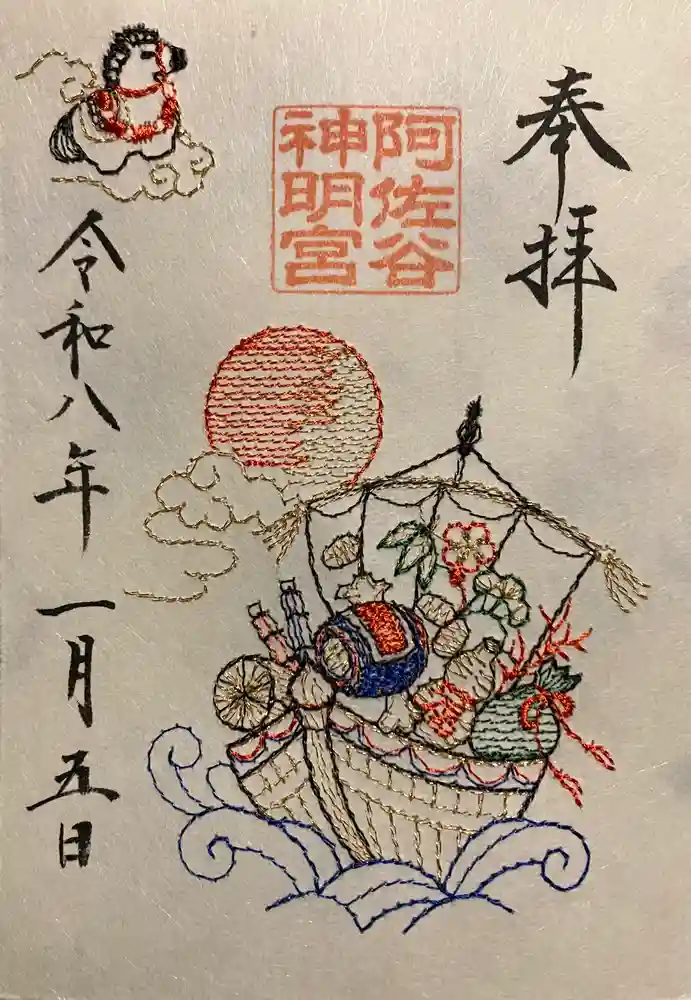 奉拝
阿佐谷
神明宮
令和八年一月五日